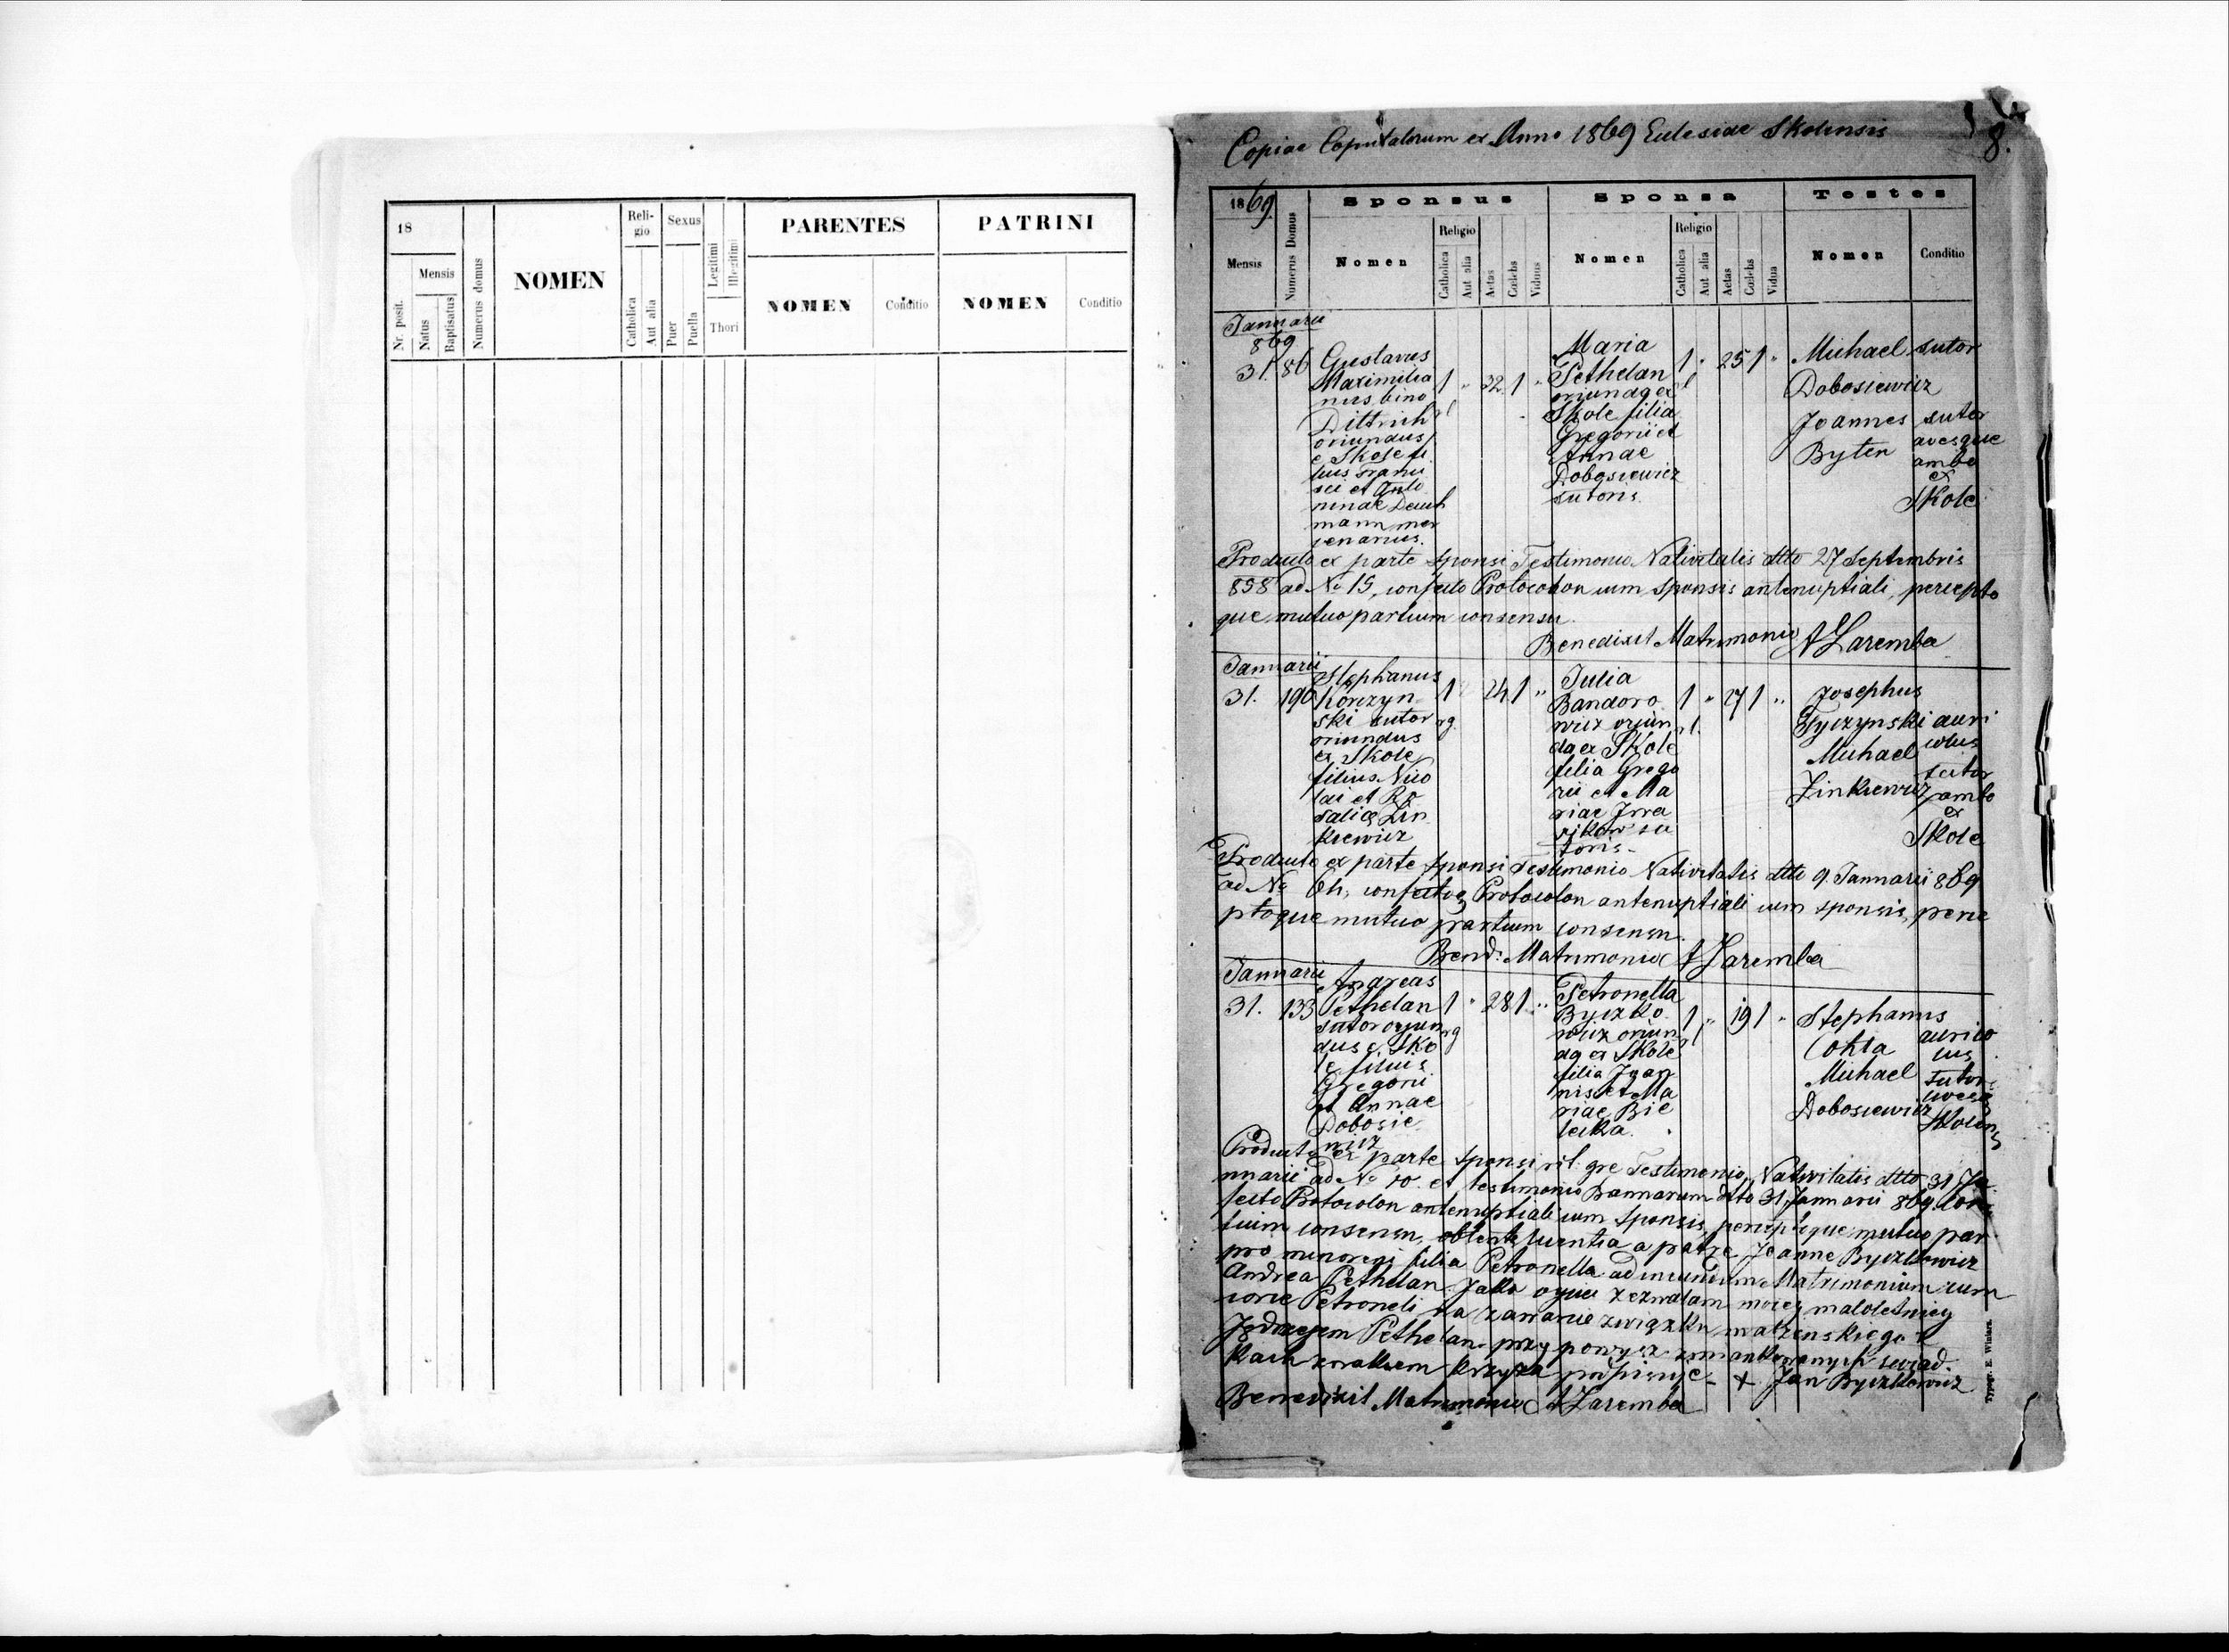 18
Mensis
Nr. posit.
Natus
Baptisatus
Numerus domus
NOMEN
Reli-
gio
Catholica
Aut alia
Sexus
Puer
Puella
Legitimi
Illegitimi
Thori
PARENTES
NOMEN
Conditio
PATRINI
NOMEN
Conditio
Copiae Copulatorum ex Anno 1869 Eclesiae Skolensis
8.
1869
Mensis
Numerus Domus
Sponsus
Nomen
Religio
Catholica
Aut alia
Aetas
Coelebs
Viduus
Sponsa
Nomen
Religio
Catholica
Aut alia
Aetas
Coelebs
Vidua
Testes
Nomen
Conditio
Januarii
869
31. 86
Gustavus
Maximilia
nus bino
Dittrich
oriundus
e Skole fi
lius Franci
sci et Anto
ninae Deuch
mann mer
cenarius.
1 " 32 1 "
rl
Maria
Pethelan
oriunda ex
Skole filia
Gregorii et
Annae
Dobosiewicz
sutoris.
1 " 25 1 "
rl
Michael sutor
Dobosiewicz
Joannes sutor
Byten
ambo
ex
Skole
Producto ex parte sponsi Testimonio Nativitatis dtto 27 Septembris
858 ad No 15, confecto Protocolon cum sponsis antenuptiali, percepto
que mutuo partium consensu.
Benedixit Matrimonio A Zaremba
Januarii
31. 190
Stephanus
Korczyn
ski sutor
oriundus
ex Skole
filius Nico
lai et Ro
salia Zin
kiewicz
1 24 1 "
rg
Julia
Bandoro
wicz oriun
da ex Skole
filia Grego
rii et Ma
riae Iwa
sikow su
toris.
1 " 27 1 "
rl.
Josephus
Tyczynski auri
colus
Michael
Zinkiewicz
sutor
ambo
ex
Skole
Producto ex parte sponsi Testimonio Nativitatis dtto 9. Januarii 869
ad No 64, confecto Protocolon antenuptiali cum sponsis, perce
ptoque mutuo partium consensu.
Bend: Matrimonio A Zaremba
Januarii
31. 133
Andreas
Pethelan
sutor oriun
dus e Sko
le filius
Gregorii
et Annae
Dobosie
wicz
1 " 28 1 "
rg
Petronella
Byczko
wicz oriun
da ex Skole
filia Joan
nis et Ma
riae Bie
lecka.
1 " 19 1 "
rl
Stephanus
Cohta
aurico
lus
Michael
Dobosiewicz
sutor
Producto ex parte sponsi rit. gre Testimonio Nativitatis dtto 31 Ja
nuarii ad No 10 et testimonio Bannorum dtto 31 Januarii 869. con
fecto Protocolon antenuptiali cum sponsis, perceptoque mutuo par
tium consensu, obtenta licentia a patre Joanne Byczkowicz
pro minoregi filia Petronella ad ineundum Matrimonium cum
Andrea Pethelan. Jako ojciec zezwalam mojej maloletniej
corce Petroneli na zawarcie zwiazku malzenskiego z
Jedrzejem Pethelan przy powyz zmiankowanych swiad.
kach znakiem krzyza podpisuje - + Jan Byczkowicz
Benedixit Matrimonio A Zaremba
Typogr. E. Winiarz.